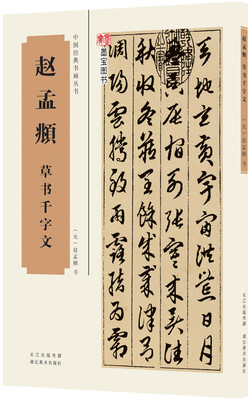 中国经典书画丛书
赵孟頫
草书千字文
（元）赵孟頫 书
墨宝图书
天地玄黃宇宙洪荒日月
盈昃辰宿列張寒來暑往
秋收冬藏閏餘成歲律呂
調陽雲騰致雨露結為
长江出版传媒
湖北美术出版社
赵孟頫 草书千字文
（元）赵孟頫 书
长江出版传媒
湖北美术出版社